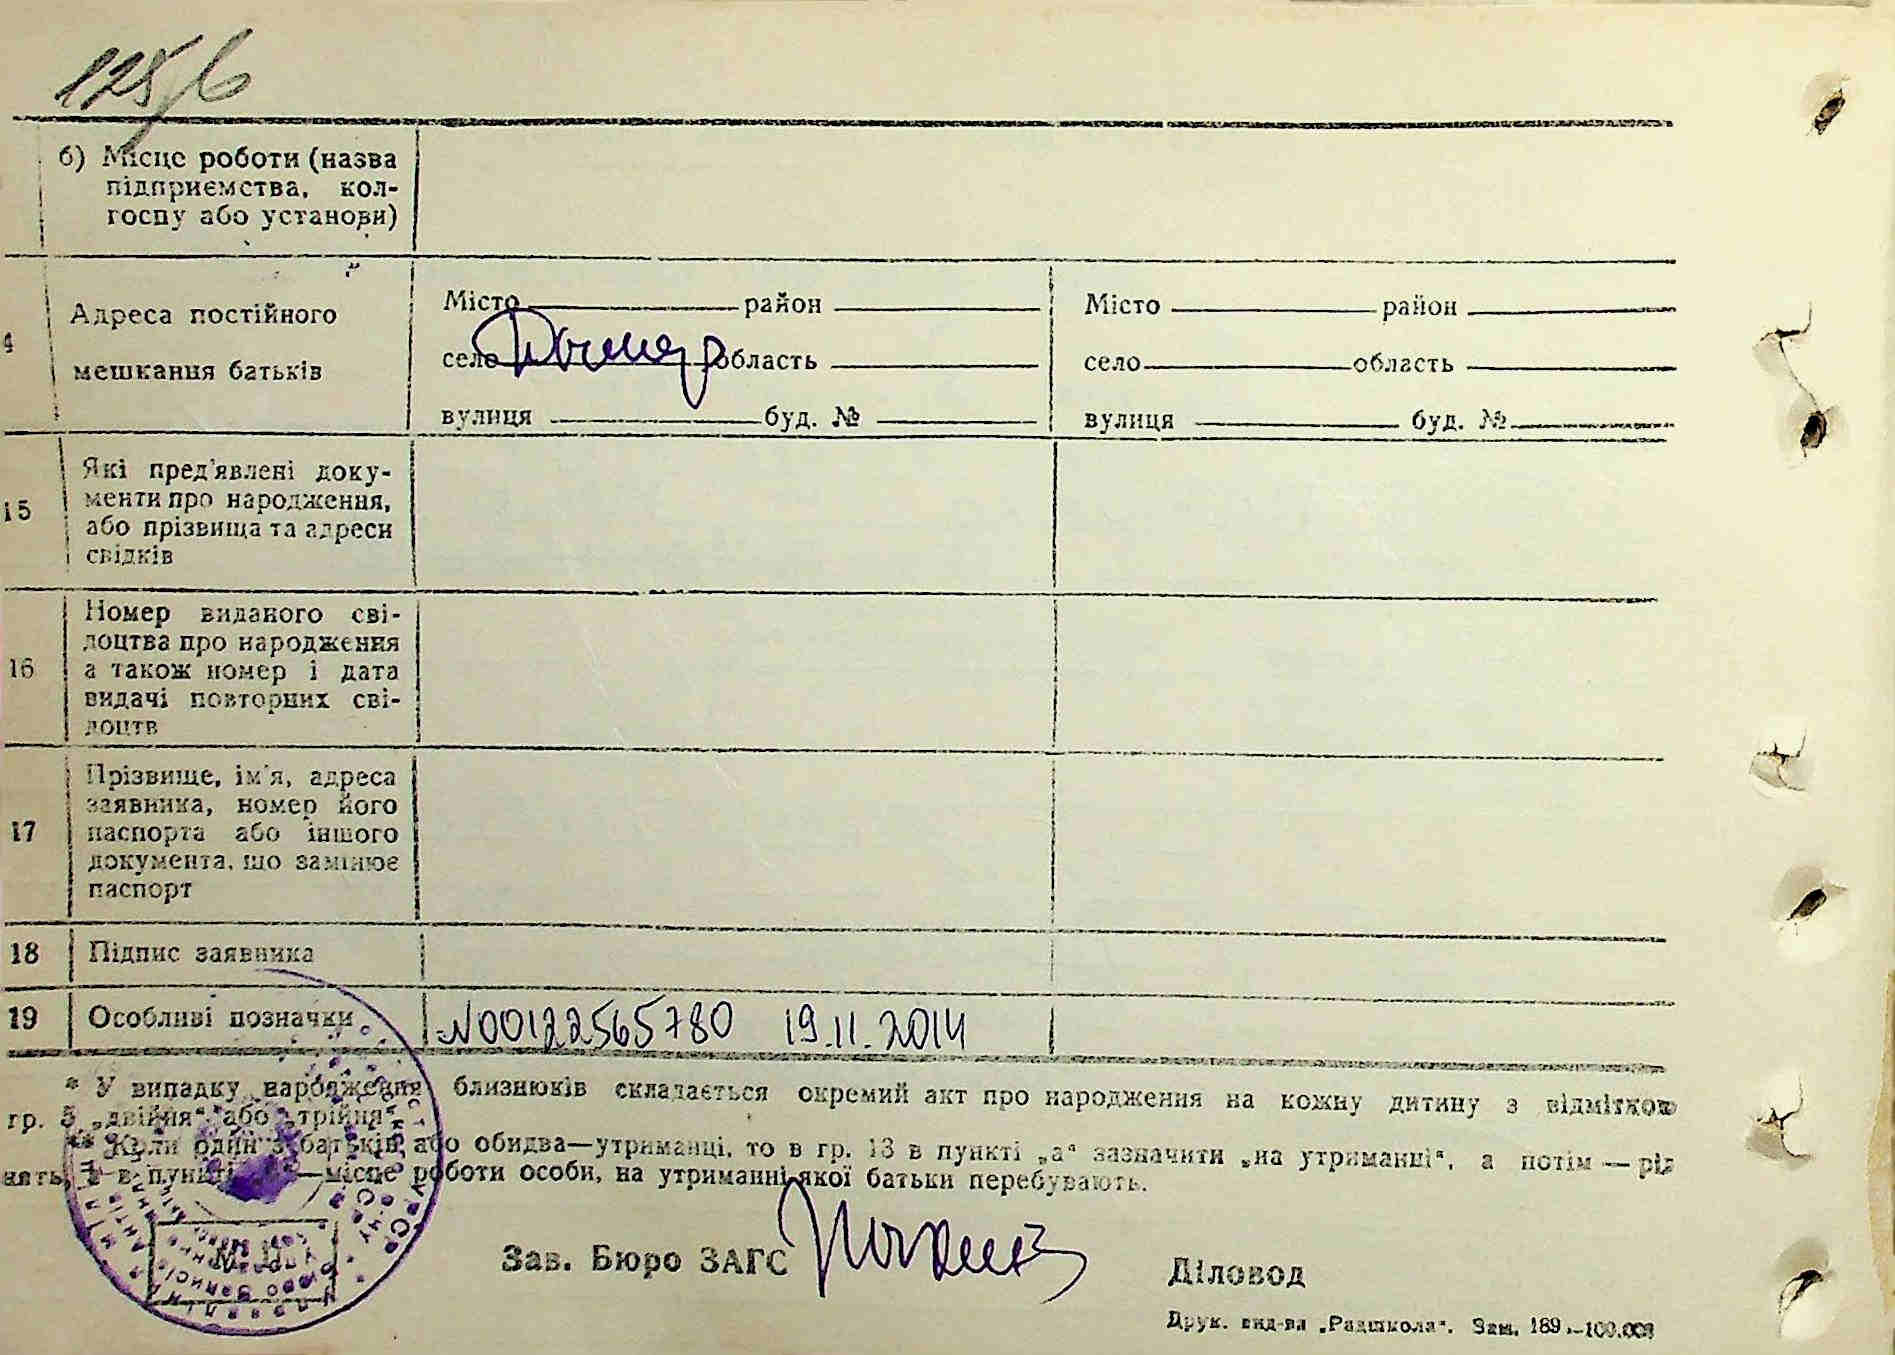 125/6
б) Місце роботи (назва
підприємства, кол-
госпу або установи)
4
Адреса постійного
мешкання батьків
Місто район
село Дымер область
вулиця буд. №
Місто район
село область
вулиця буд. №
15
Які пред'явлені доку-
менти про народження,
або прізвища та адреси
свідків
16
Номер виданого сві-
доцтва про народження
а також номер і дата
видачі повторних сві-
доцтв
17
Прізвище, ім'я, адреса
заявника, номер його
паспорта або іншого
документа, що замінює
паспорт
18 Підпис заявника
19 Особливі позначки N00122565780 19.11.2014
* У випадку народження близнюків складається окремий акт про народження на кожну дитину з відміткою
гр. 5 „двійня" або „трійня"
** Коли один з батьків або обидва—утриманці, то в гр. 13 в пункті „а" зазначити „на утриманці", а потім — рід
нять, а в пункті —місце роботи особи, на утриманні якої батьки перебувають.
М. П.
Зав. Бюро ЗАГС
Діловод
Друк. вид-ва „Радшкола". Зам. 189.—100.000